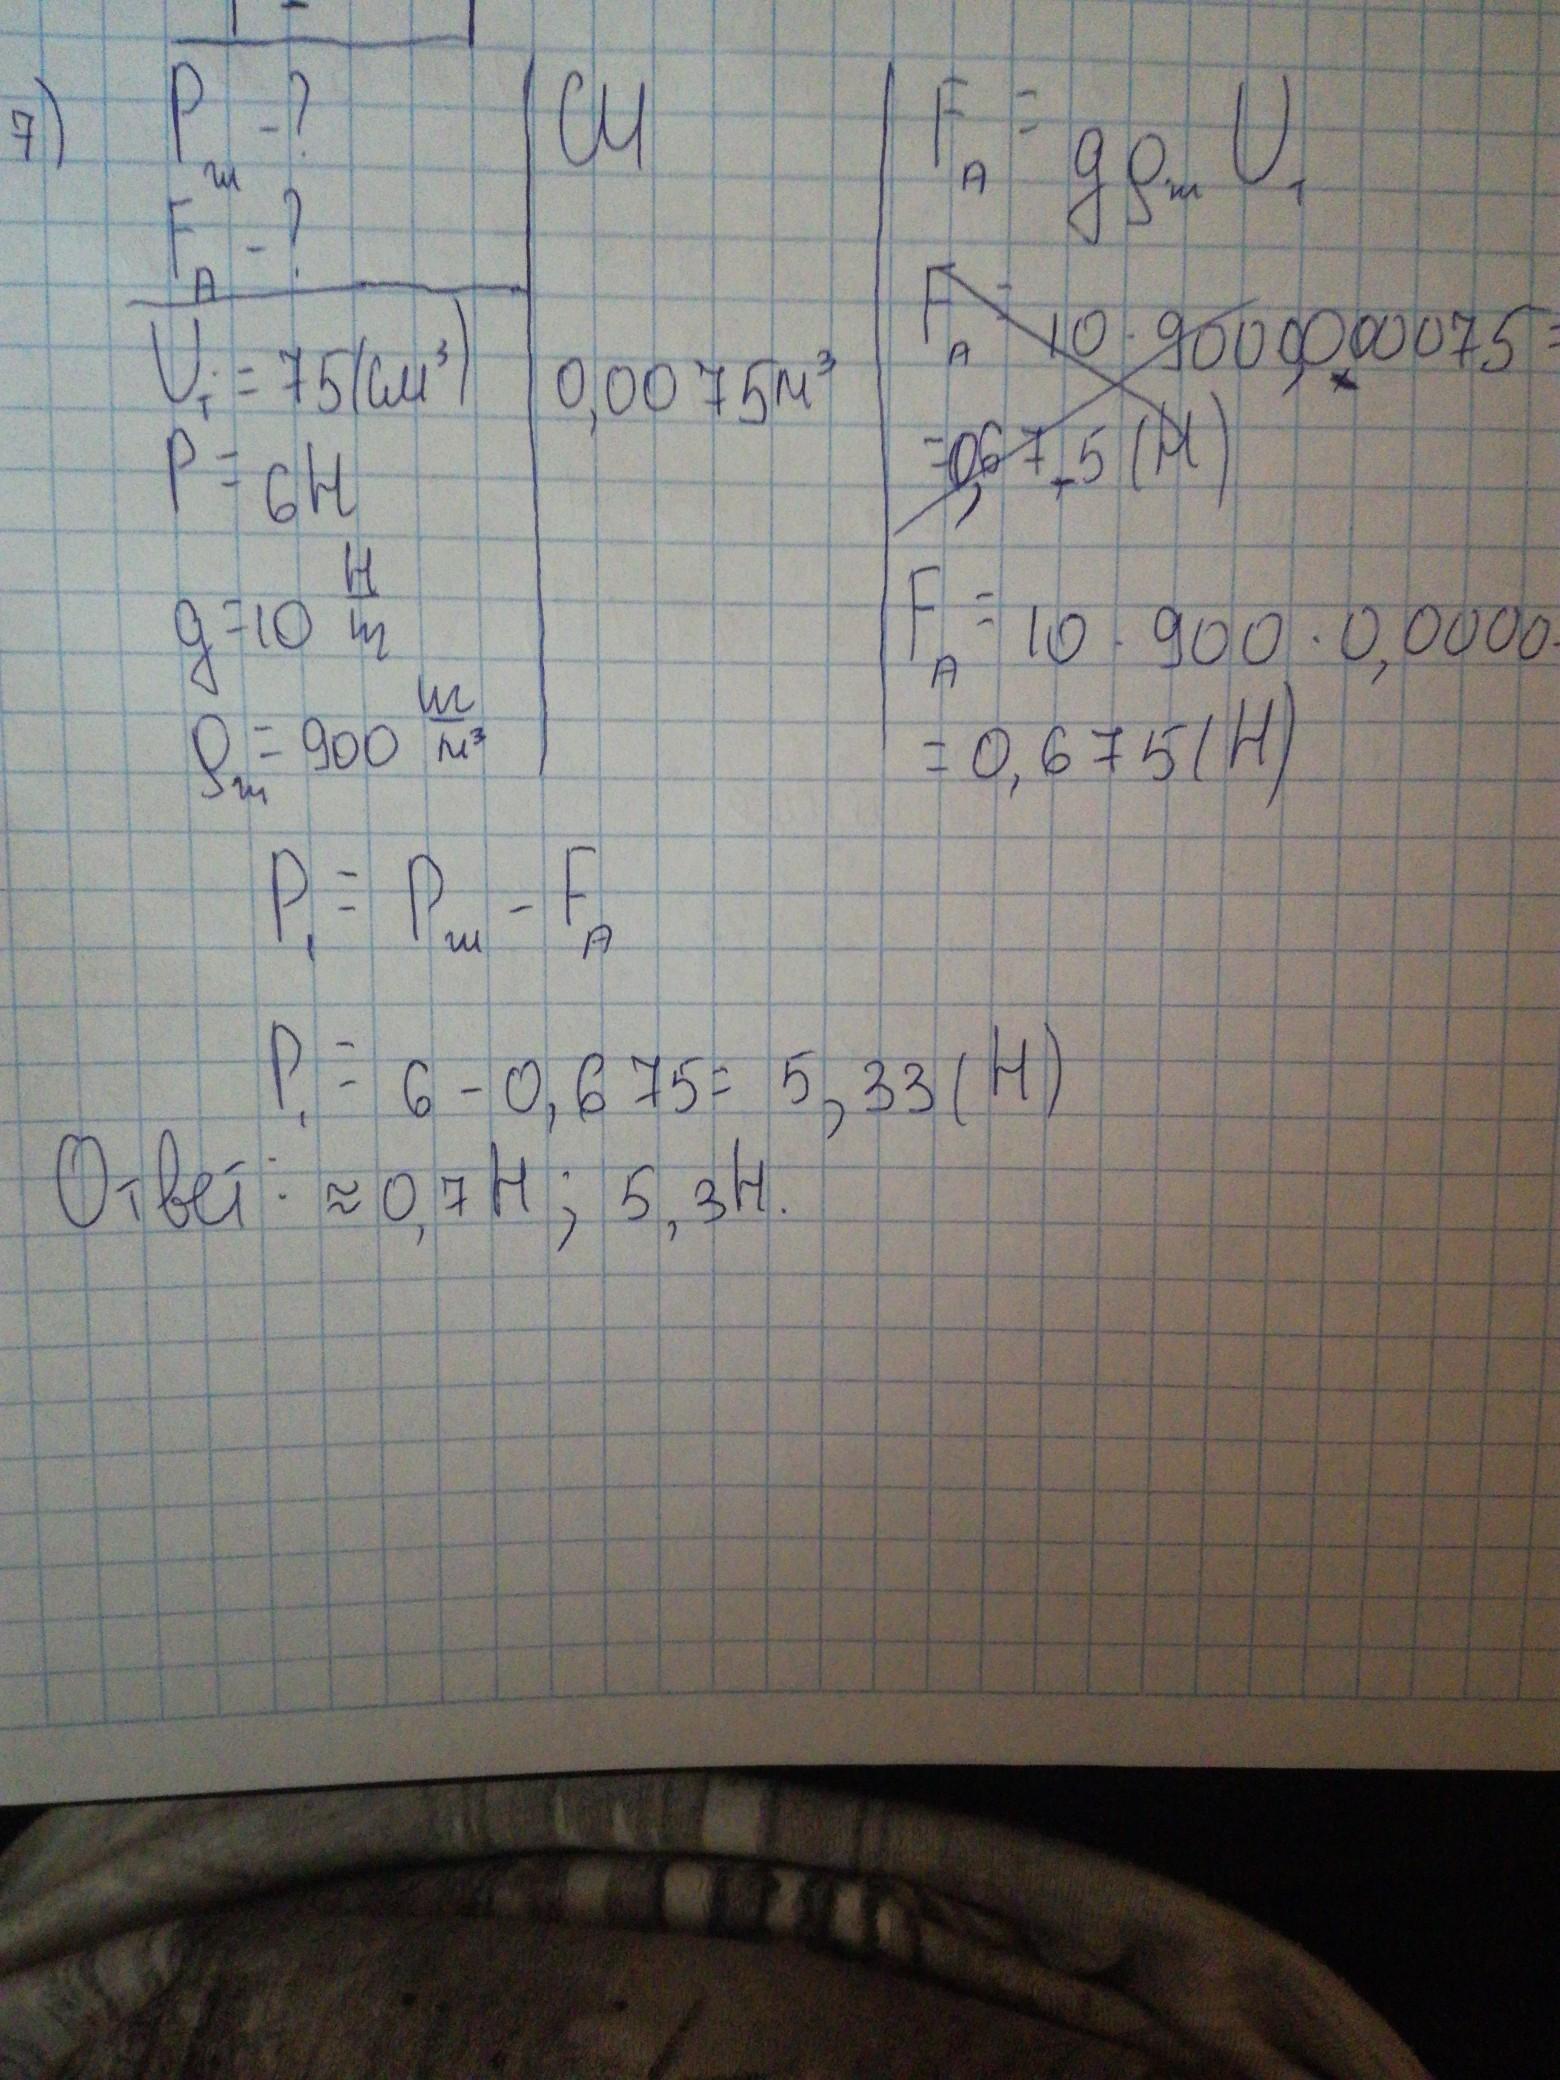 7)
Pж - ?
FA - ?
Uт = 75(см³)
P = 6H
g = 10 H/кг
ρж = 900 кг/м³
СИ
0,0075м³
FA = gρж Uт
FA = 10 · 900 · 0,000075 =
= 0,675 (H)
FA = 10 · 900 · 0,0000
= 0,675(H)
P₁ = Pж - FA
P₁ = 6 - 0,675 = 5,33(H)
Ответ: ≈ 0,7H; 5,3H.